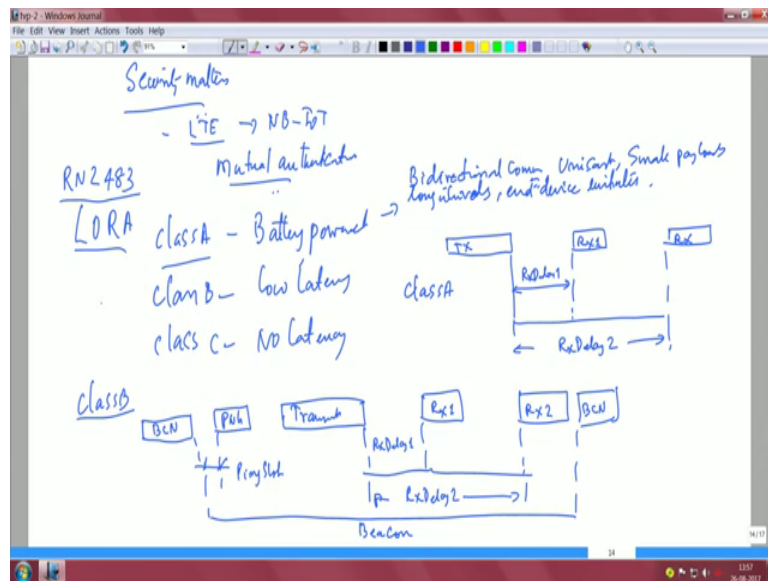 hvp-2 - Windows Journal
File Edit View Insert Actions Tools Help
91%
Security matters
- LTE → NB-IoT
Mutual authentication
RN2483
LORA
Class A - Battery powered → Bidirectional Comm, Unicast, Small payloads
long intervals, end device initiates.
Class B - Low latency
Class C - No latency
Class A
TX Rx1 Rx
RxDelay1
RxDelay2
Class B
BCN PNG Transmit Rx1 Rx2 BCN
RxDelay1
Ping Slot
RxDelay2
Beacon
14/17
14
13:57
26-08-2017